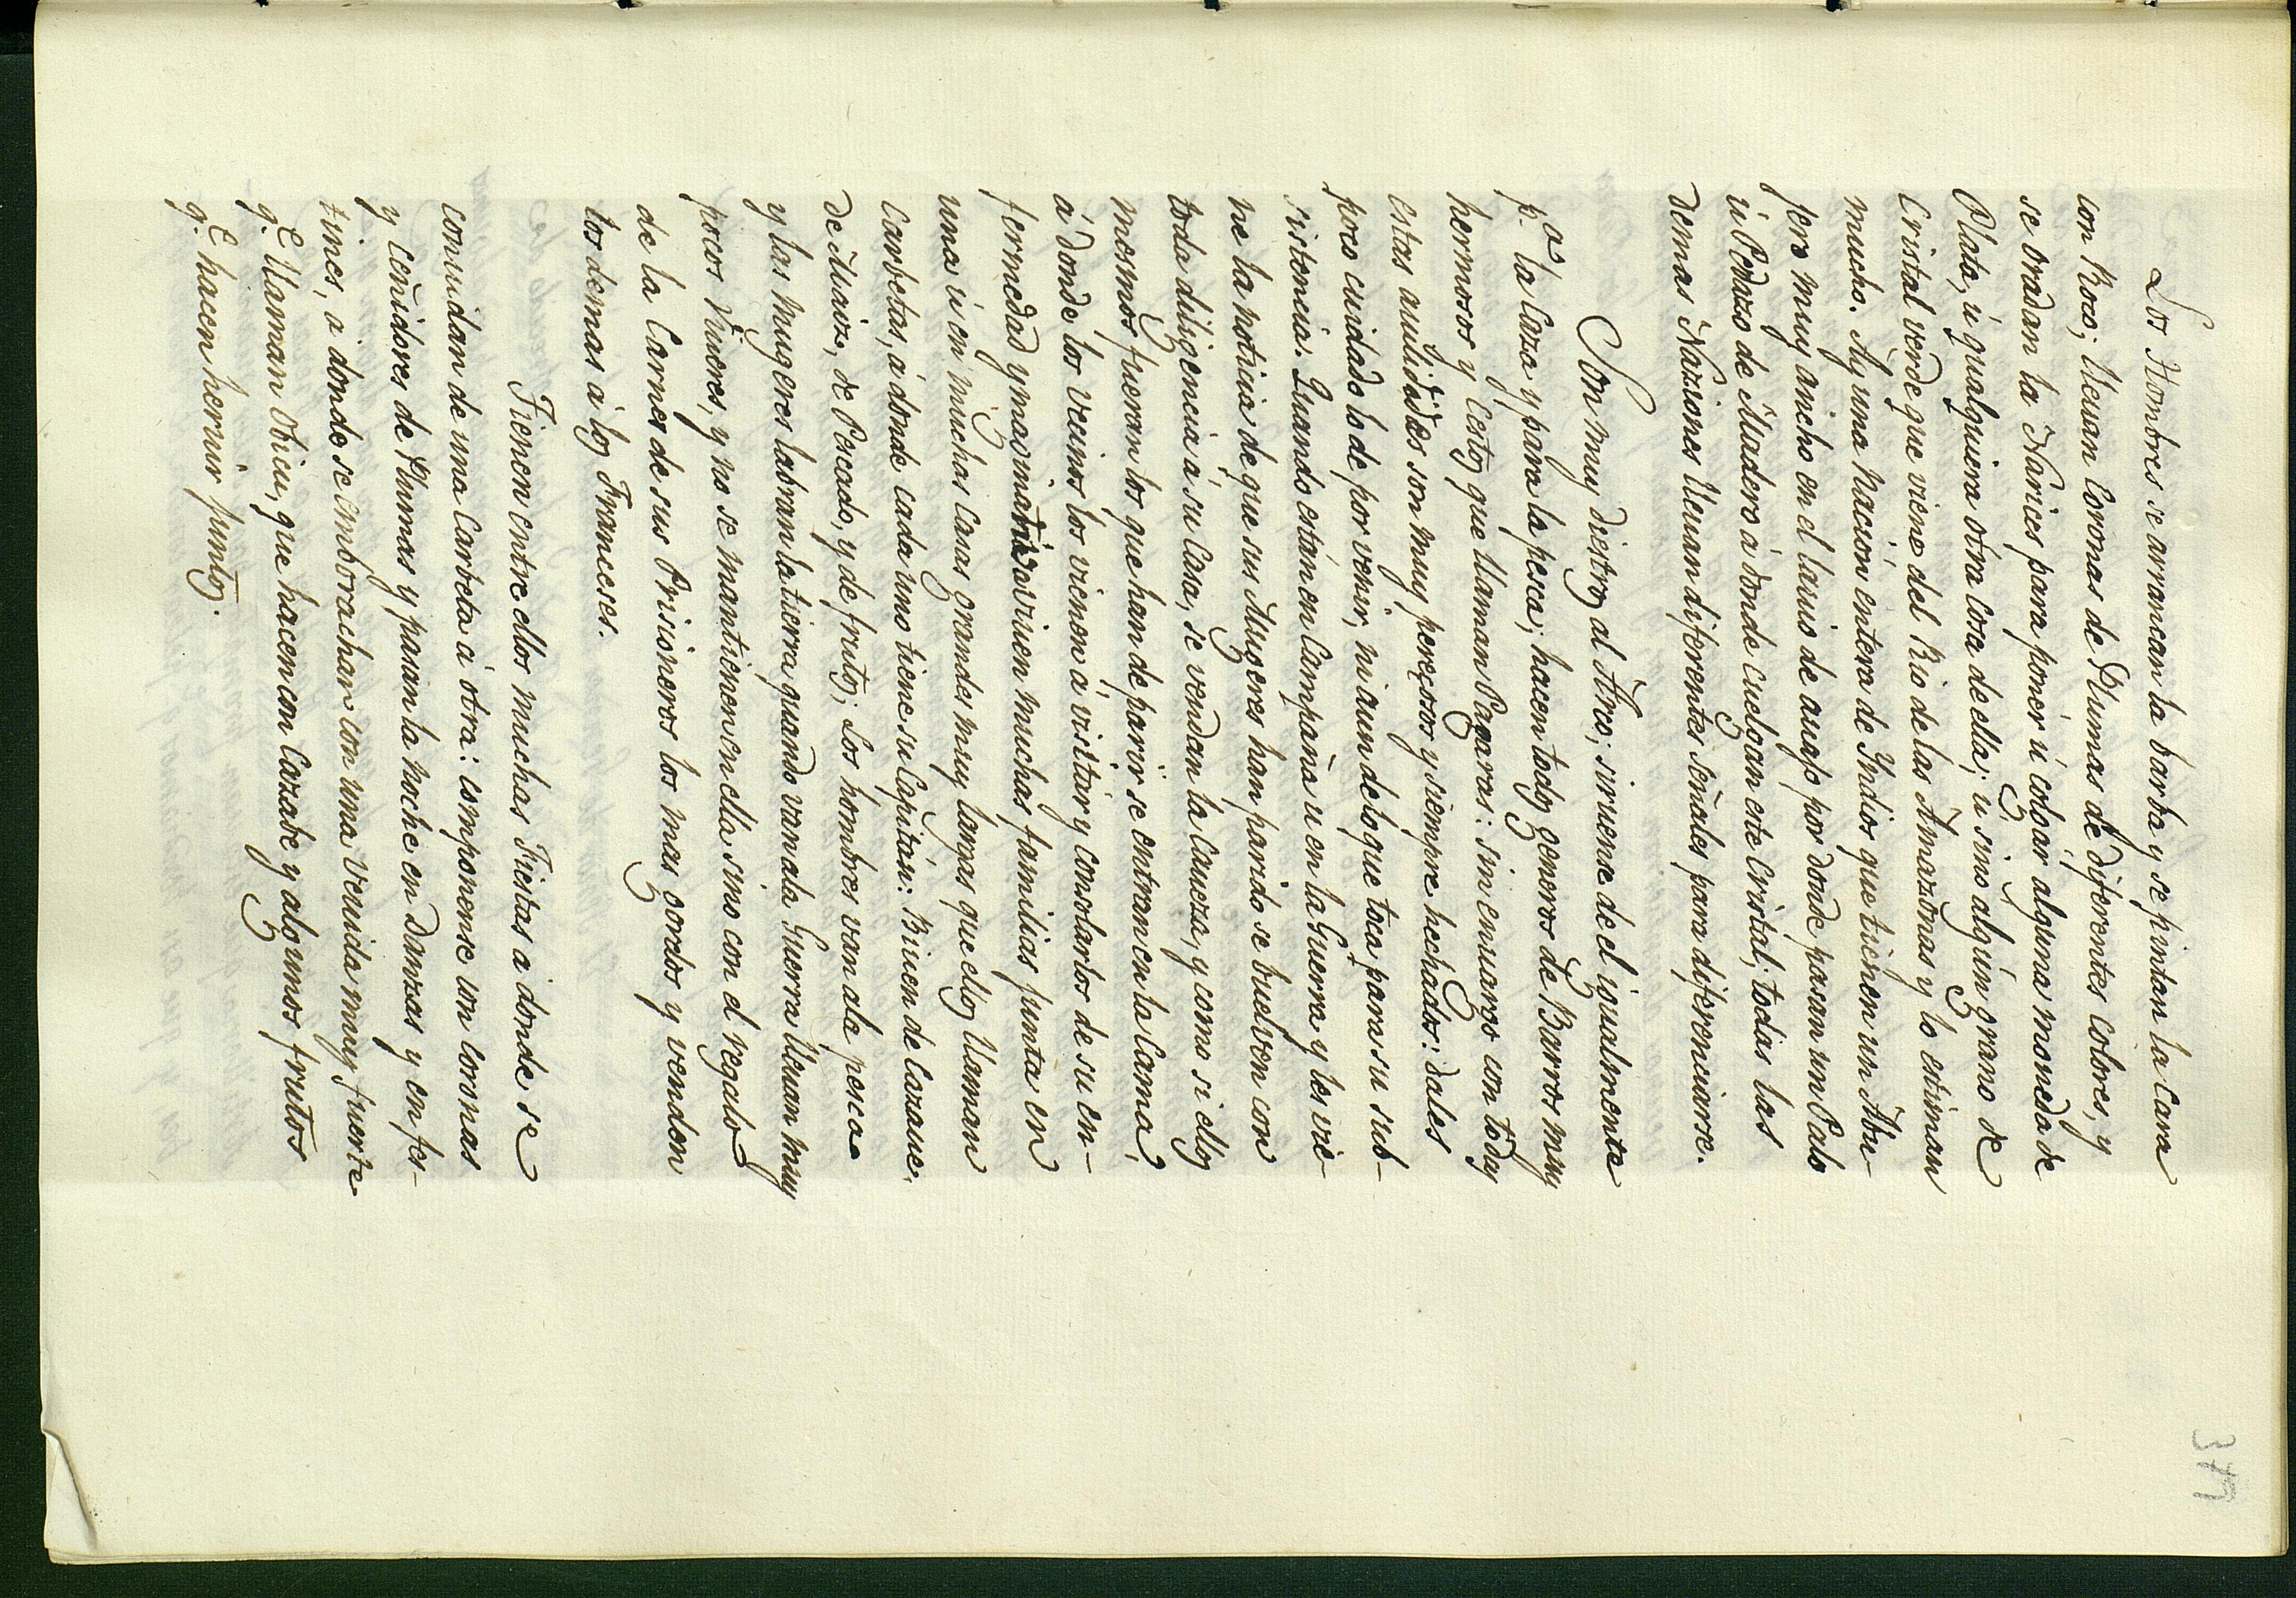 347
Los Hombres se arrancan la barba y se pintan la Cara
con Roco; lleuan Coronas de Plumas de diferentes Colores, y
se oradan la Narices para ponér ú colgár alguna moneda de
Plata, ú qualquiera otra Cosa de ella; u sino algún grano de
Cristal verde que viene del Rio de las Amazonas y lo estiman
mucho. Ay una Nación entera de Yndios que tienen un Abu-
jero muy ancho en el lauio de auajo por donde pasan un Palo
ú Pedazo de Madero á donde cuelgan este Cristal; todas las
demas Naziones lleuan diferentes señales para diferenciarse.
Son muy diestros al Arco; siruense de el igualmente
p.ª la Caza y para la pesca; hacen todos generos de Barros muy
hermosos y Cestos que llaman Pagaras: sin enuargo con todas
estas auilidades son muy pereçosos y siempre hechados: dales
poco cuidado lo de por venir, ni aun de lo que toca para su sub-
sistencia. Quando están en Campaña u en la Guerra y les vie-
ne la noticia de que sus Mugeres han parido se buelven con
toda diligencia á su Casa, se vendan la Caueza, y como si ellos
mesmos fueran los que han de parir se entran en la Cama,
á donde los vecinos los vienen á visitár y consolarlos de su en-
fermedad y mas viuen muchas familias junta en
una ú en muchas Casas grandes muy largas que ellos llaman
Carbetas, á donde cada uno tiene su Capitán: Biuen de Cazaue,
de Maiz, de Pescado, y de frutos; Los hombres van ala pesca
y las Mugeres labran la tierra quando van ala Guerra lleuan muy
pocos víueres, y no se mantienen en ella sino con el regalo
de la Carnes de sus Prisioneros los mas gordos y venden
los demas á los Franceses.
Tienen entre ellos muchas Fiestas a donde se
conuidan de una Carbeta á otra: componense con Coronas
y Ceñidores de Plumas y pasan la noche en Danzas y en fes-
tines, a donde se emborachan con una veuida muy fuerte
q.e llaman Obicu, que hacen con Cazabe y algunos frutos
q.e hacen heruir juntos.